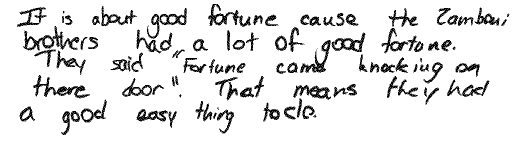 It is about good fortune cause the Zamboni
brothers had a lot of good fortune.
They said "Fortune came knocking on
there door". That means they had
a good easy thing to do.